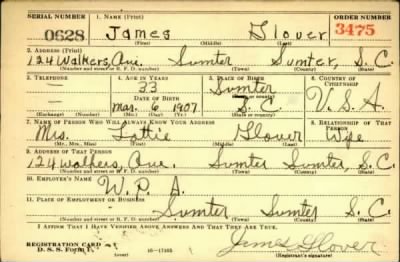 SERIAL NUMBER 1. NAME (Print) ORDER NUMBER
0628 James Glover 3475
(First) (Middle) (Last)
2. ADDRESS (Print)
124 Walkers, Ave. Sumter Sumter, S.C.
(Number and street or R. F. D. number) (Town) (County) (State)
3. TELEPHONE 4. AGE IN YEARS 5. PLACE OF BIRTH 6. COUNTRY OF CITIZENSHIP
33 Sumter
DATE OF BIRTH (Town or county)
Mar. 6 1907 S.C. U.S.A.
(Exchange) (Number) (Mo.) (Day) (Yr.) (State or country)
7. NAME OF PERSON WHO WILL ALWAYS KNOW YOUR ADDRESS 8. RELATIONSHIP OF THAT PERSON
Mrs. Lottie Glover Wife
(Mr., Mrs., Miss) (First) (Middle) (Last)
9. ADDRESS OF THAT PERSON
124 Walkers, Ave. Sumter Sumter, S.C.
(Number and street or R. F. D. number) (Town) (County) (State)
10. EMPLOYER'S NAME
W.P.A.
11. PLACE OF EMPLOYMENT OR BUSINESS
Sumter Sumter S.C.
(Number and street or R. F. D. number) (Town) (County) (State)
I AFFIRM THAT I HAVE VERIFIED ABOVE ANSWERS AND THAT THEY ARE TRUE.
REGISTRATION CARD
D. S. S. Form 1 16-17105 James Glover
(Registrant's signature)